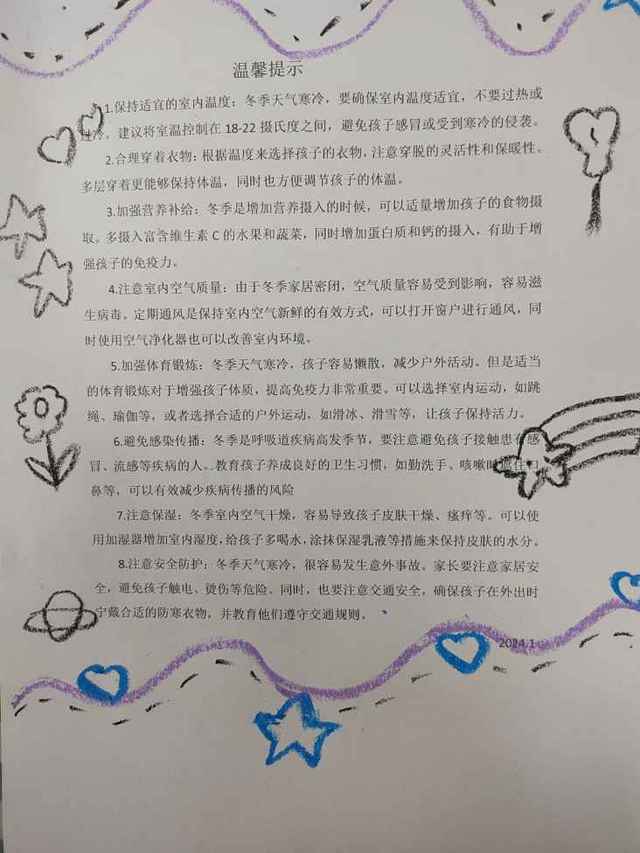 温馨提示
1.保持适宜的室内温度：冬季天气寒冷，要确保室内温度适宜，不要过热或
过冷。建议将室温控制在 18-22 摄氏度之间，避免孩子感冒或受到寒冷的侵袭。
2.合理穿着衣物：根据温度来选择孩子的衣物，注意穿脱的灵活性和保暖性。
多层穿着更能够保持体温，同时也方便调节孩子的体温。
3.加强营养补给：冬季是增加营养摄入的时候，可以适量增加孩子的食物摄
取。多摄入富含维生素 C 的水果和蔬菜，同时增加蛋白质和钙的摄入，有助于增
强孩子的免疫力。
4.注意室内空气质量：由于冬季家居密闭，空气质量容易受到影响，容易滋
生病毒。定期通风是保持室内空气新鲜的有效方式，可以打开窗户进行通风，同
时使用空气净化器也可以改善室内环境。
5.加强体育锻炼：冬季天气寒冷，孩子容易懒散，减少户外活动。但是适当
的体育锻炼对于增强孩子体质，提高免疫力非常重要。可以选择室内运动，如跳
绳、瑜伽等，或者选择合适的户外运动，如滑冰、滑雪等，让孩子保持活力。
6.避免感染传播：冬季是呼吸道疾病高发季节，要注意避免孩子接触患有感
冒、流感等疾病的人。教育孩子养成良好的卫生习惯，如勤洗手、咳嗽时遮住口
鼻等，可以有效减少疾病传播的风险
7.注意保湿：冬季室内空气干燥，容易导致孩子皮肤干燥、瘙痒等。可以使
用加湿器增加室内湿度，给孩子多喝水，涂抹保湿乳液等措施来保持皮肤的水分。
8.注意安全防护：冬季天气寒冷，很容易发生意外事故。家长要注意家居安
全，避免孩子触电、烫伤等危险。同时，也要注意交通安全，确保孩子在外出时
穿戴合适的防寒衣物，并教育他们遵守交通规则。
2024.1